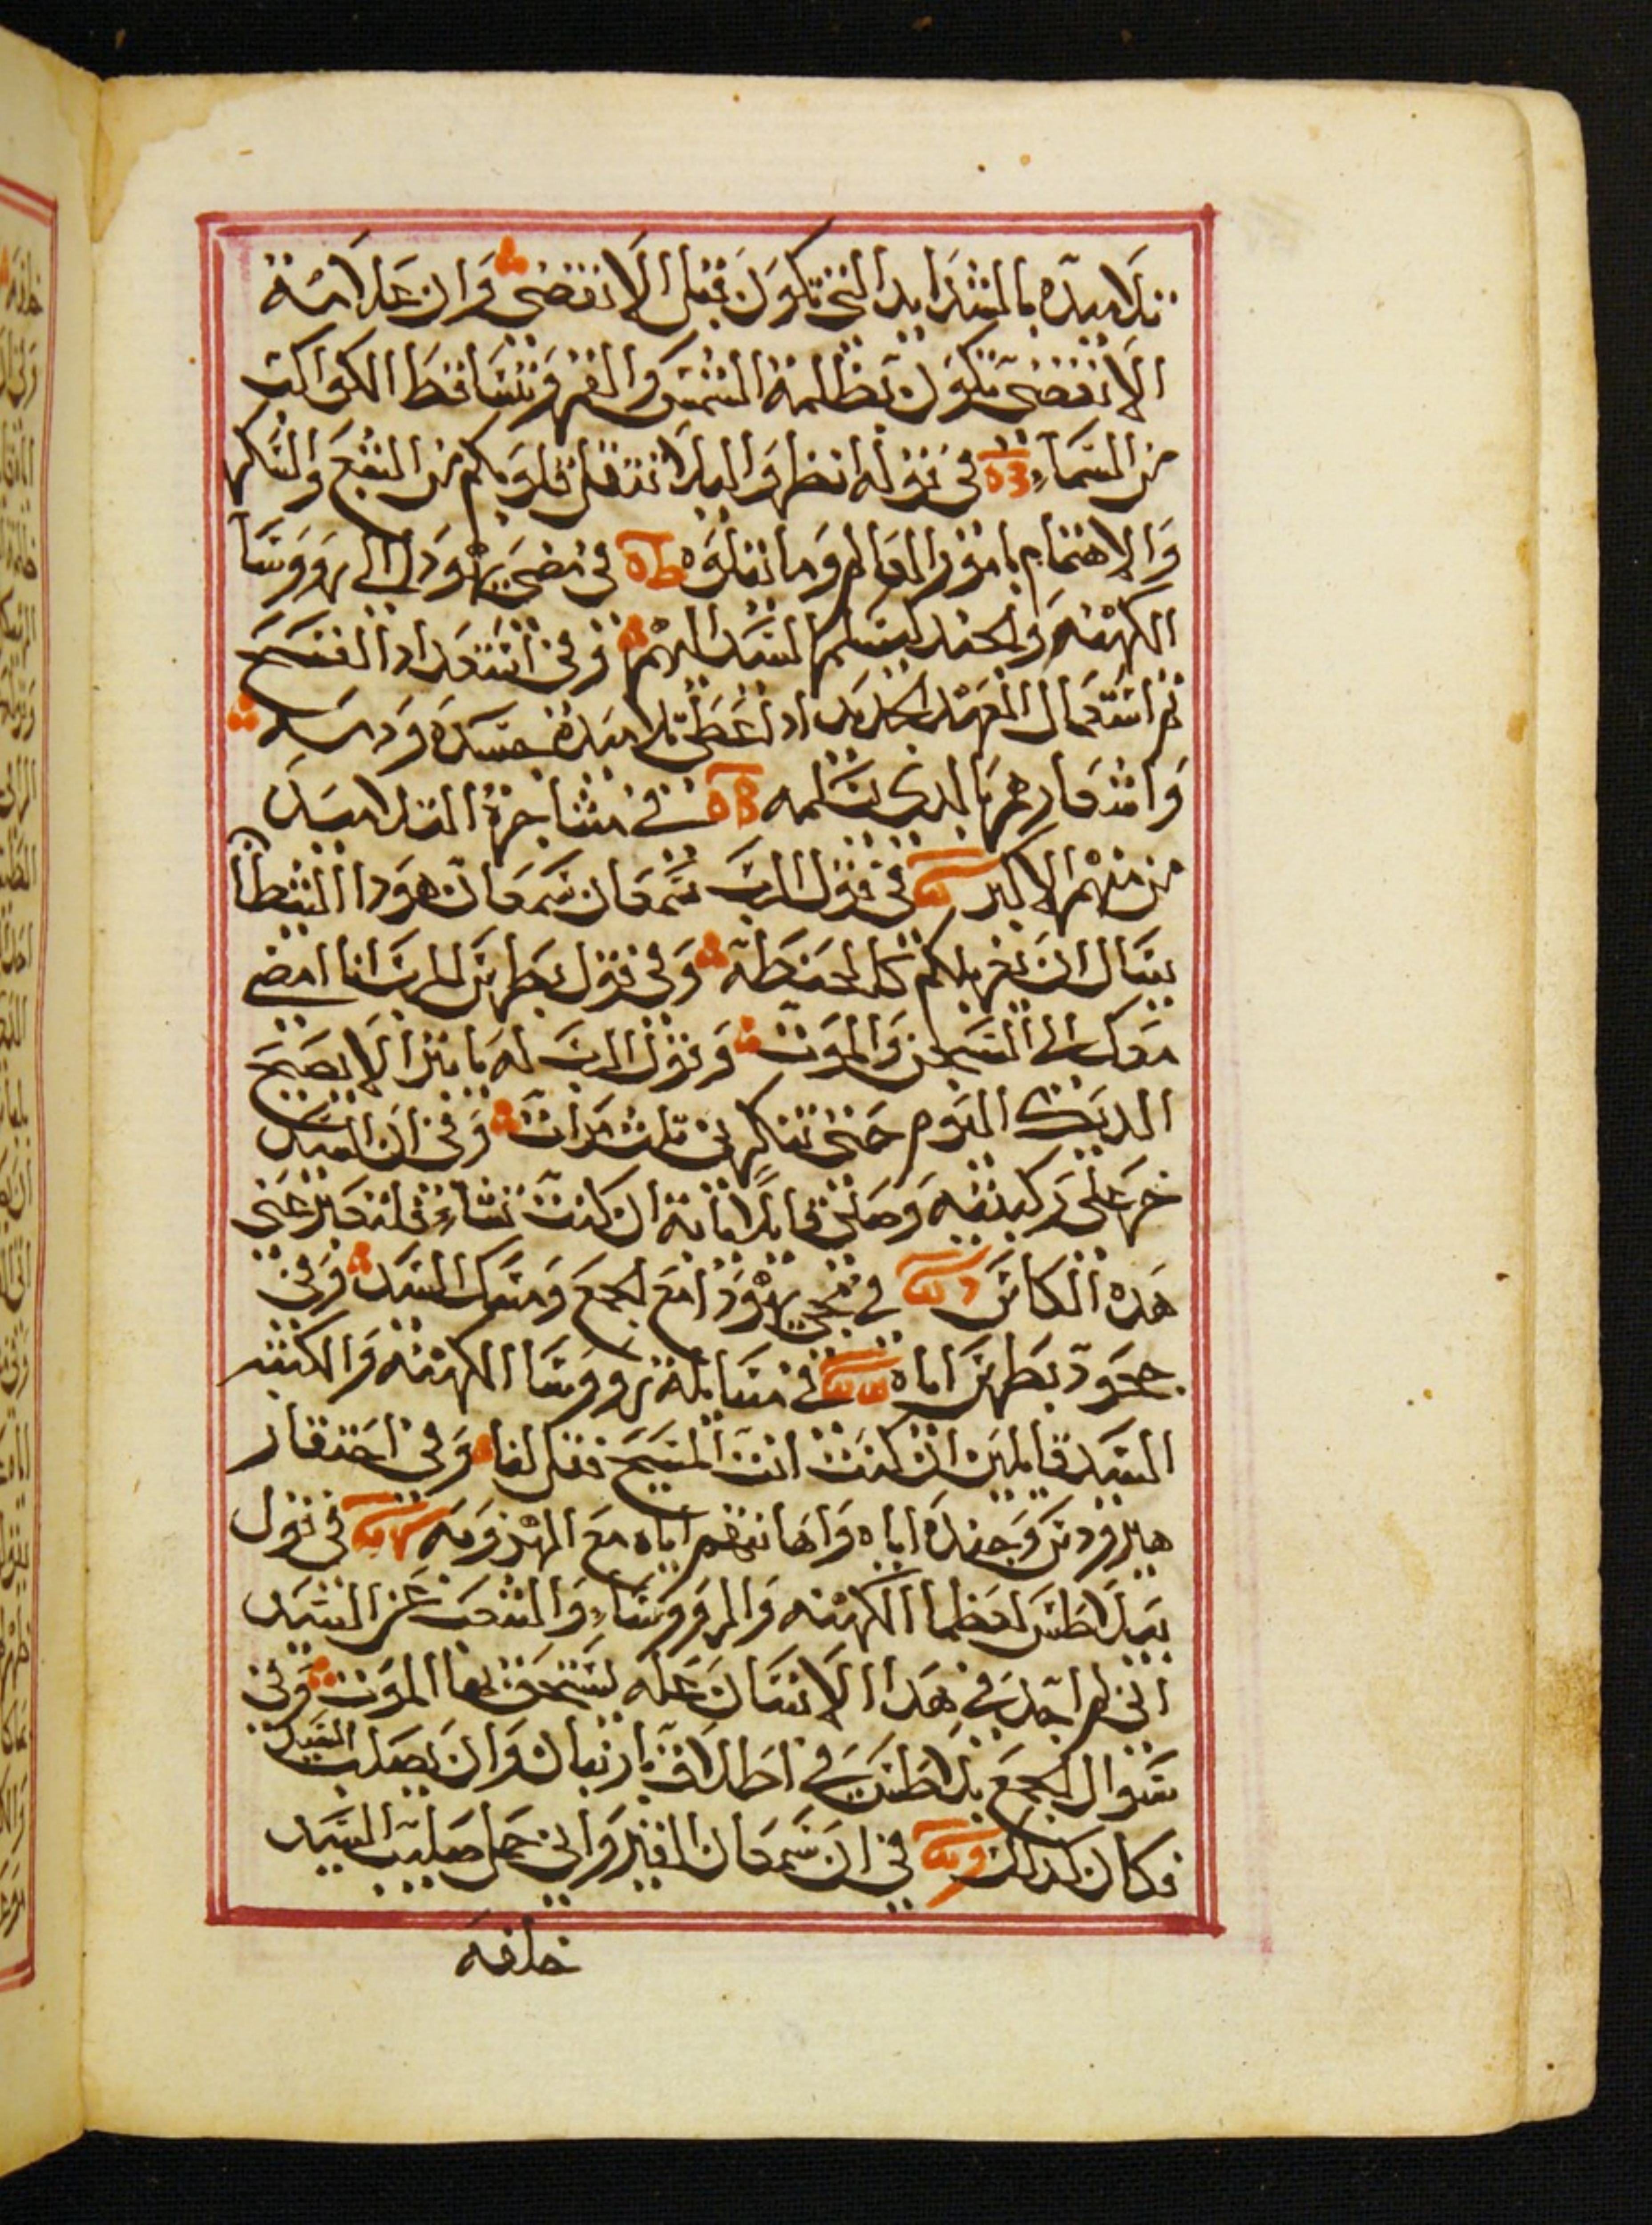 تلاميده بالشدايد التي تكون قبل الانقضى وان علامة
الانقضى تكون بظلمة الشمس والقمر وتساقط الكواكب
من السماء في قوله انظروا ليلا تتقل قلوبكم من الشبع والسكر
والاهتمام بامور العالم وما يتلوه في مضى يهودا الى رووسا
الكهنه والجند ليسلم السيد اليهم وفي استعداد الفسح
ثم استعمال العهد الجديد اد اعطى تلاميده جسده ودمه
وانذارهم بالدى يسلمه في مشاجرة التلاميد
من منهم الاكبر في قول الرب سمعان سمعان هودا الشيطان
يسال ان يغربلكم كالحنطة وفي قول بطرس للرب انا امضى
معك الى السجن والموت وقول الرب له يا بطرس لا يصيح
الديك اليوم حتى تنكرني تلت مرات وفي ان السيد
خر على ركبتيه وصلى قايلا يا ابة ان كنت تشاء فلتعبر عني
هده الكاس في مجى يهودا مع الجمع ومسك السيد وفي
جحود بطرس اياه في مسايلة رووسا الكهنه والكتبه
السيد قايلين ان كنت انت المسيح فقل لنا وفي احتقار
هيرودس وجنده اياه واهانتهم اياه مع الهزو به في قول
بيلاطس لعظما الكهنه والرووساء والشعب عن السيد
اني لم اجد في هدا الانسان عله يستحق بها الموت وفي
سوال الجمع بيلاطس في اطلاق باربان وان يصلب السيد
فكان كدلك في ان سمعان القيرواني حمل صليب السيد
خلفه